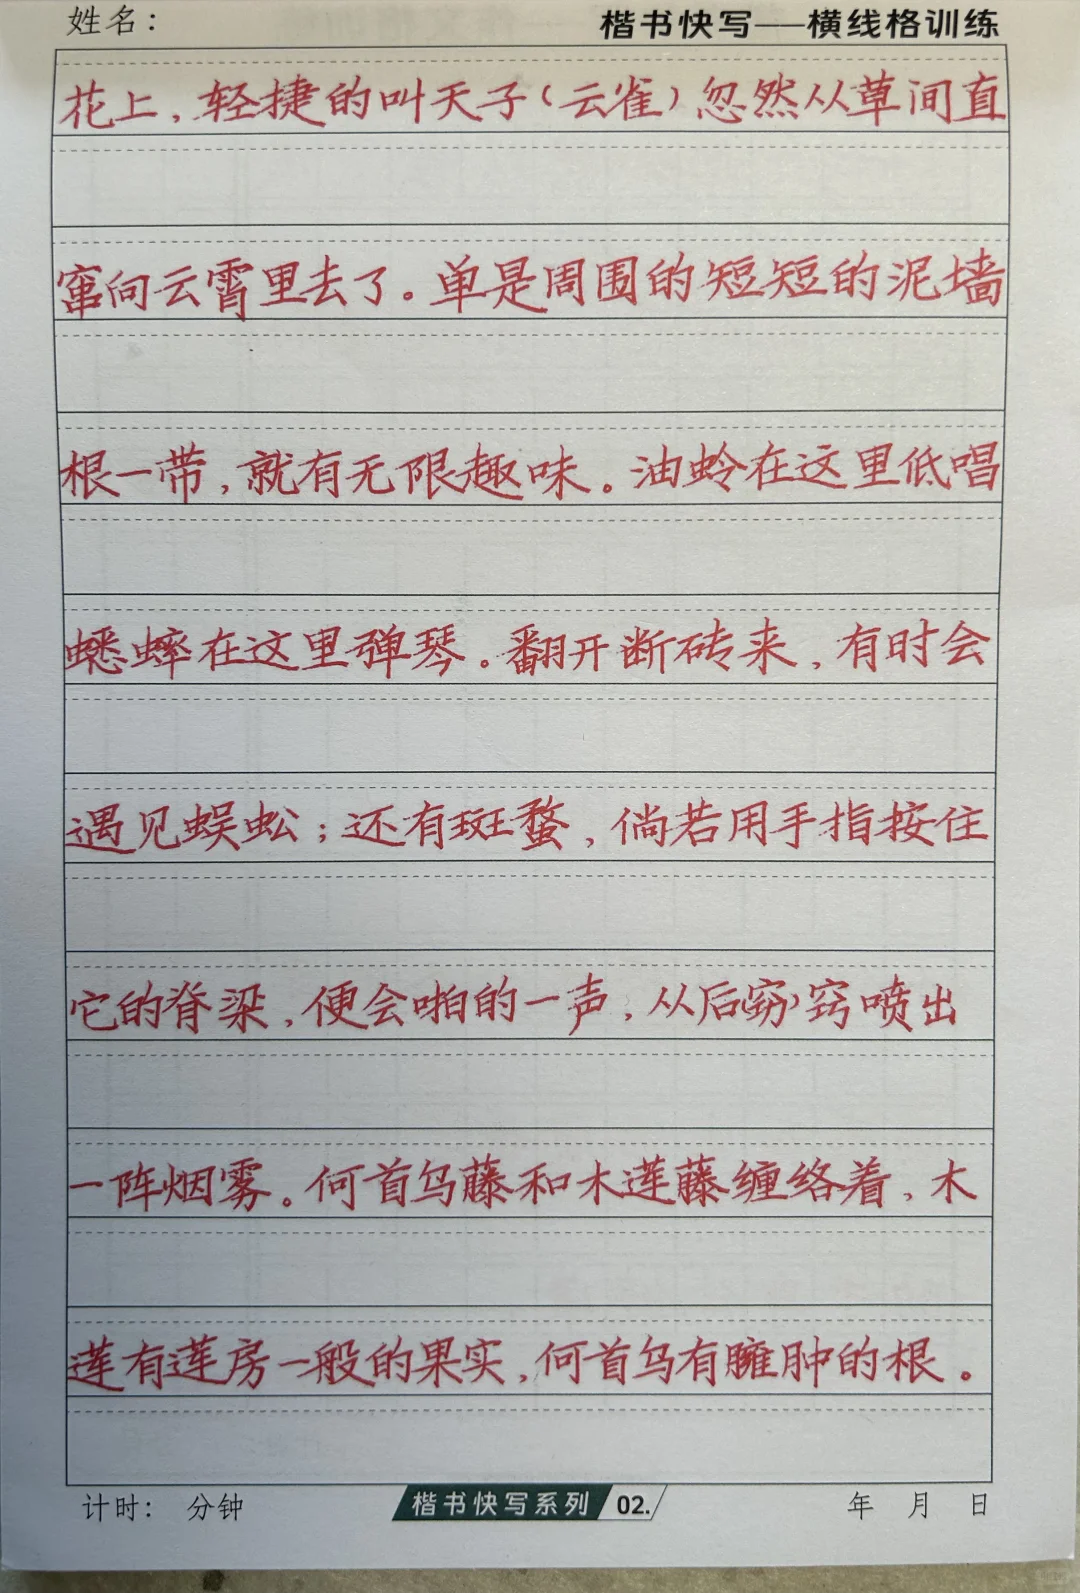 姓名：
楷书快写——横线格训练
花上，轻捷的叫天子（云雀）忽然从草间直
窜向云霄里去了。单是周围的短短的泥墙
根一带，就有无限趣味。油蛉在这里低唱
蟋蟀在这里弹琴。翻开断砖来，有时会
遇见蜈蚣；还有斑蝥，倘若用手指按住
它的脊梁，便会啪的一声，从后窍窍喷出
一阵烟雾。何首乌藤和木莲藤缠络着，木
莲有莲房一般的果实，何首乌有臃肿的根。
计时： 分钟
楷书快写系列 02.
年 月 日